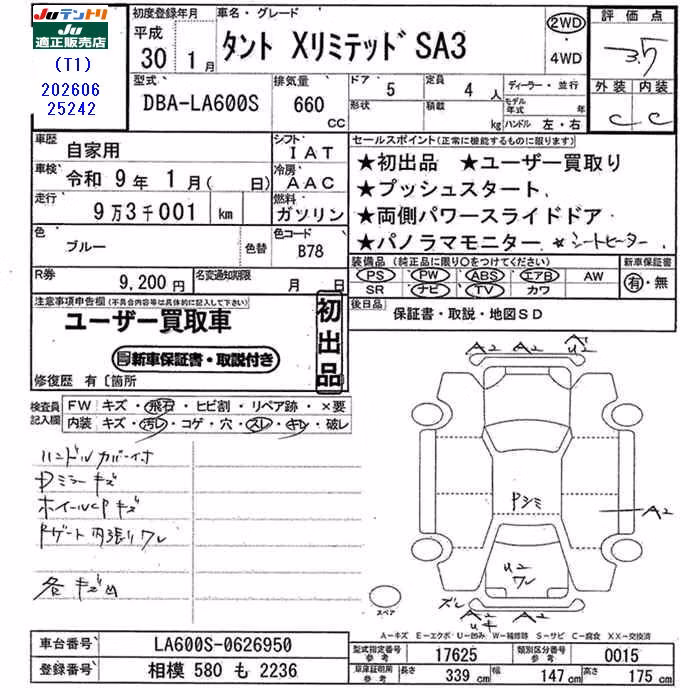 Juテントリ
Ju テントリ
適正販売店
(T1)
202606
25242
初度登録年月
平成
30年 1月
車名・グレード
タント XリミテッドSA3
2WD
4WD
評価点
3.5
型式
DBA-LA600S
排気量
660
CC
ドア
5
形状
定員
4人
積載
kg
ディーラー・並行
モデル年式 年
ハンドル 左・右
外装 内装
C C
車歴
自家用
シフト
IAT
車検
令和 9年 1月( 日)
冷房
AAC
走行
9万3千001 km
燃料
ガソリン
色
ブルー
色替
色コード
B78
R券
9,200円
名変通知期限
月 日
セールスポイント(正常に機能するものに限ります。)
★初出品 ★ユーザー買取り
★プッシュスタート
★両側パワースライドドア
★パノラマモニター ★シートヒーター
装備品(純正品に限り○をつけてください)
PS PW ABS エアB AW
SR ナビ TV カワ
新車保証書
有・無
後日品
保証書・取説・地図SD
注意事項申告欄(不具合内容等は具体的に記入して下さい)
ユーザー買取車
新車保証書・取説付き
初出品
修復歴 有〔箇所
検査員記入欄
FW キズ・飛石・ヒビ割・リペア跡・×要
内装 キズ・汚レ・コゲ・穴・スレ・キレ・破レ
ハンドルカバー付
Dミラーキズ
ホイールCPキズ
Rゲート内張りワレ
各キズ凹
A2 A2 A2
U2
Pシミ
A2
U2
ワレ
ズレ A2 A2
U4
スペア
A-キズ E-エクボ U-凹み W-補修跡 S-サビ C-腐食 XX-交換済
車台番号
LA600S-0626950
登録番号
相模 580 も 2236
型式指定番号
参考
17625
類別区分番号
参考
0015
車庫証明用
参考
長さ 339cm 幅 147cm 高さ 175cm